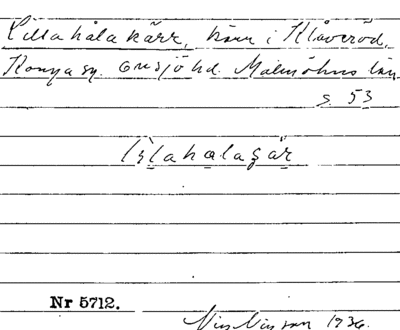 Lilla håla kärr, kärr i Klåveröd,
Konga sn. Onsjö hd. Malmöhus län
s. 53
Nr 5712.
Nils Nilsson 1936.